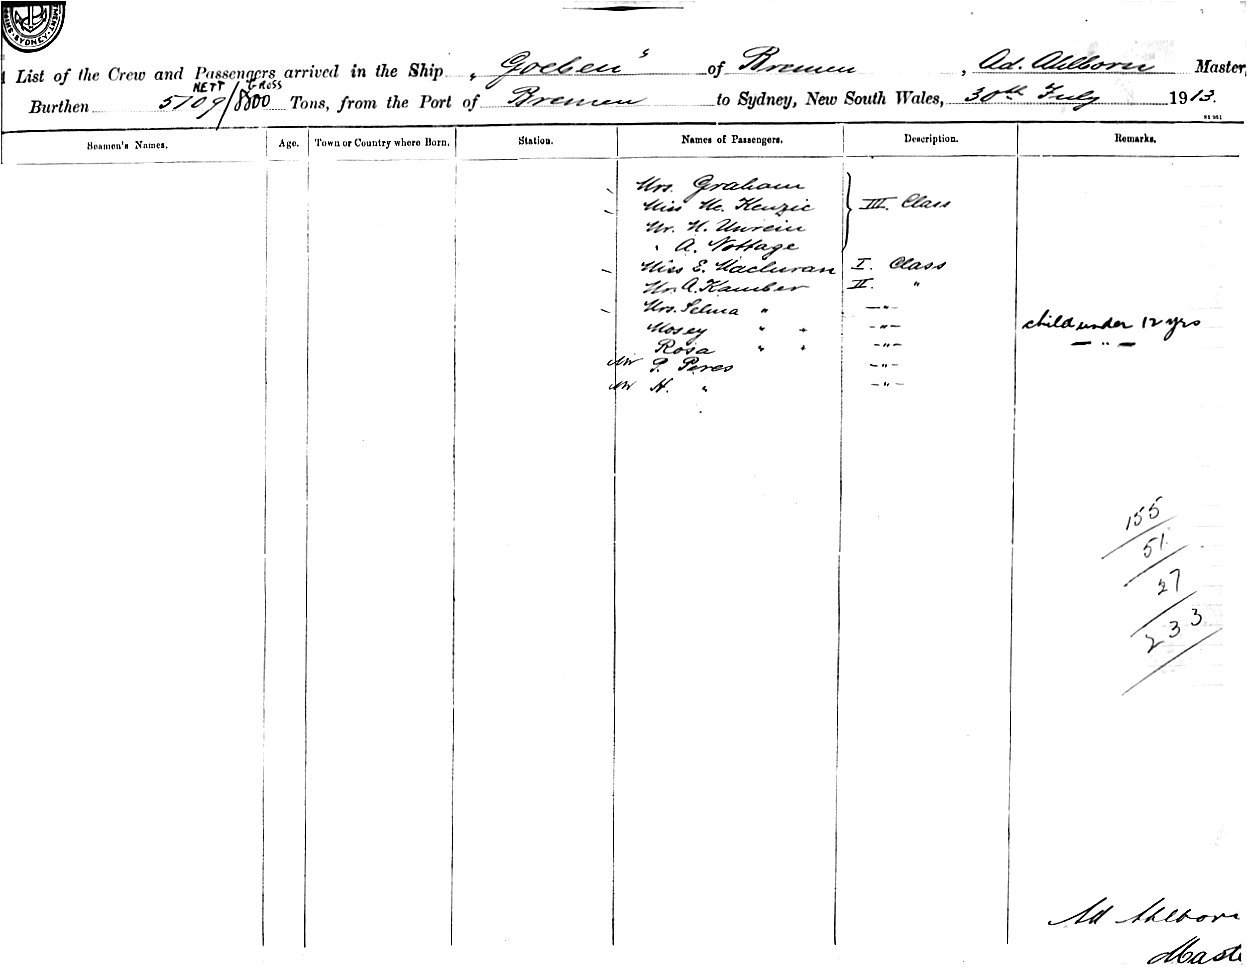 SYDNEY
List of the Crew and Passengers arrived in the Ship „Goeben“ of Bremen, Ad. Ahlborn Master,
NETT GROSS
Burthen 5109/8800 Tons, from the Port of Bremen to Sydney, New South Wales, 30th July 1913.
Seamen's Names. Age. Town or Country where Born. Station. Names of Passengers. Description. Remarks.
Mrs. Graham
Miss Mc. Kenzie III. Class
Mr. H. Unrein
" A. Nottage
Miss E. Macluran I. Class
Mr. A. Kamber II. "
Mrs. Selma " —"—
Mosey " + —"— child under 12 yrs
Rosa " + —"— — " —
Mr P. Peres —"—
Mr H. " —"—
155
51
27
233
Ad Ahlborn
Maste